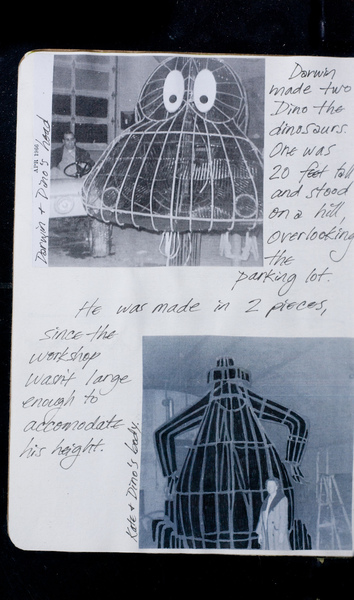 Darwin
made two
Dino the
dinosaurs.
One was
20 feet tall
and stood
on a hill,
overlooking
the
parking lot.
Darwin + Dino's head
APR 1966
He was made in 2 pieces,
since the
workshop
wasn't large
enough to
accomodate
his height.
Kate + Dino's body.